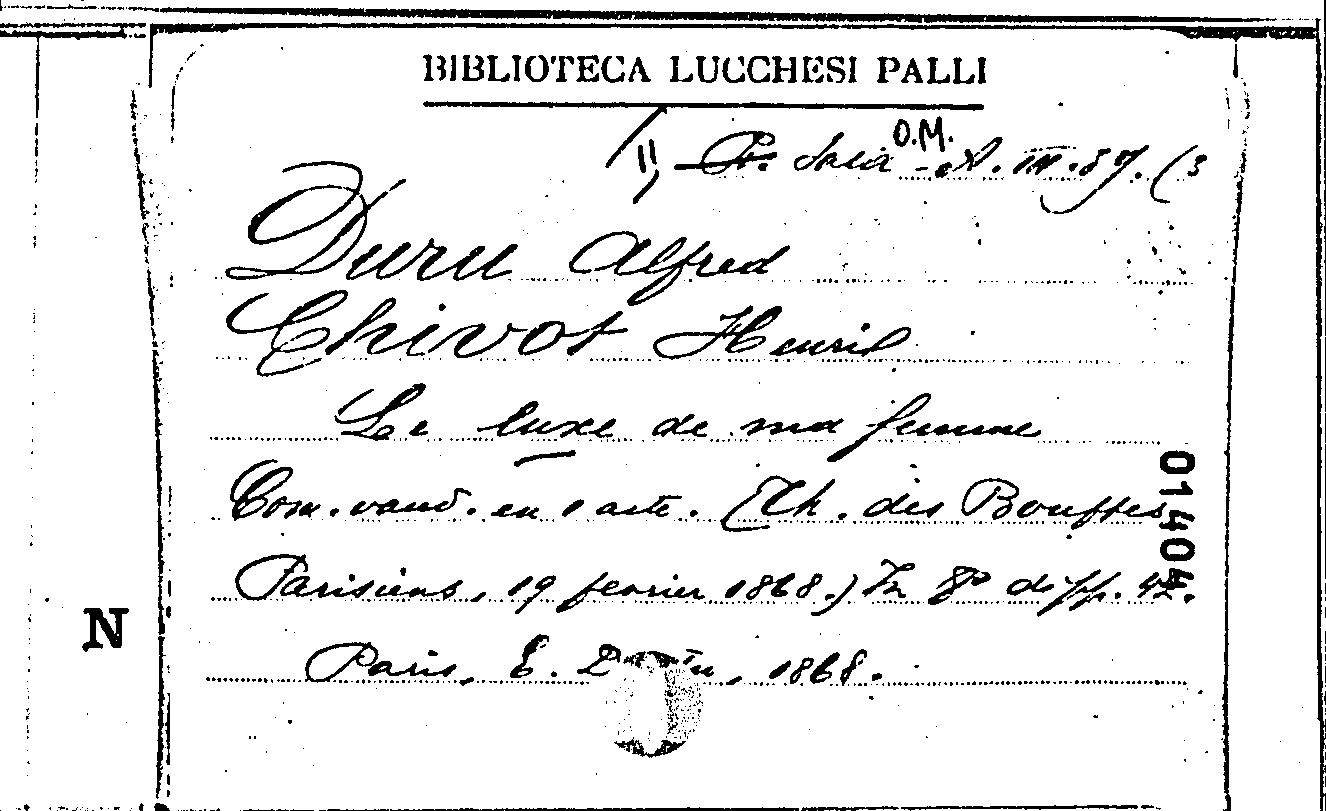 BIBLIOTECA LUCCHESI PALLI
O.M.
Sala - A. III. 37. (3
Duru Alfred
Chivot Henri
Le luxe de ma femme
Com. vaud. en 1 acte. (Th. des Bouffes
Parisiens, 19 fevrier 1868.) In 8º di pp. 42.
Paris, E. 1868.
01404
N